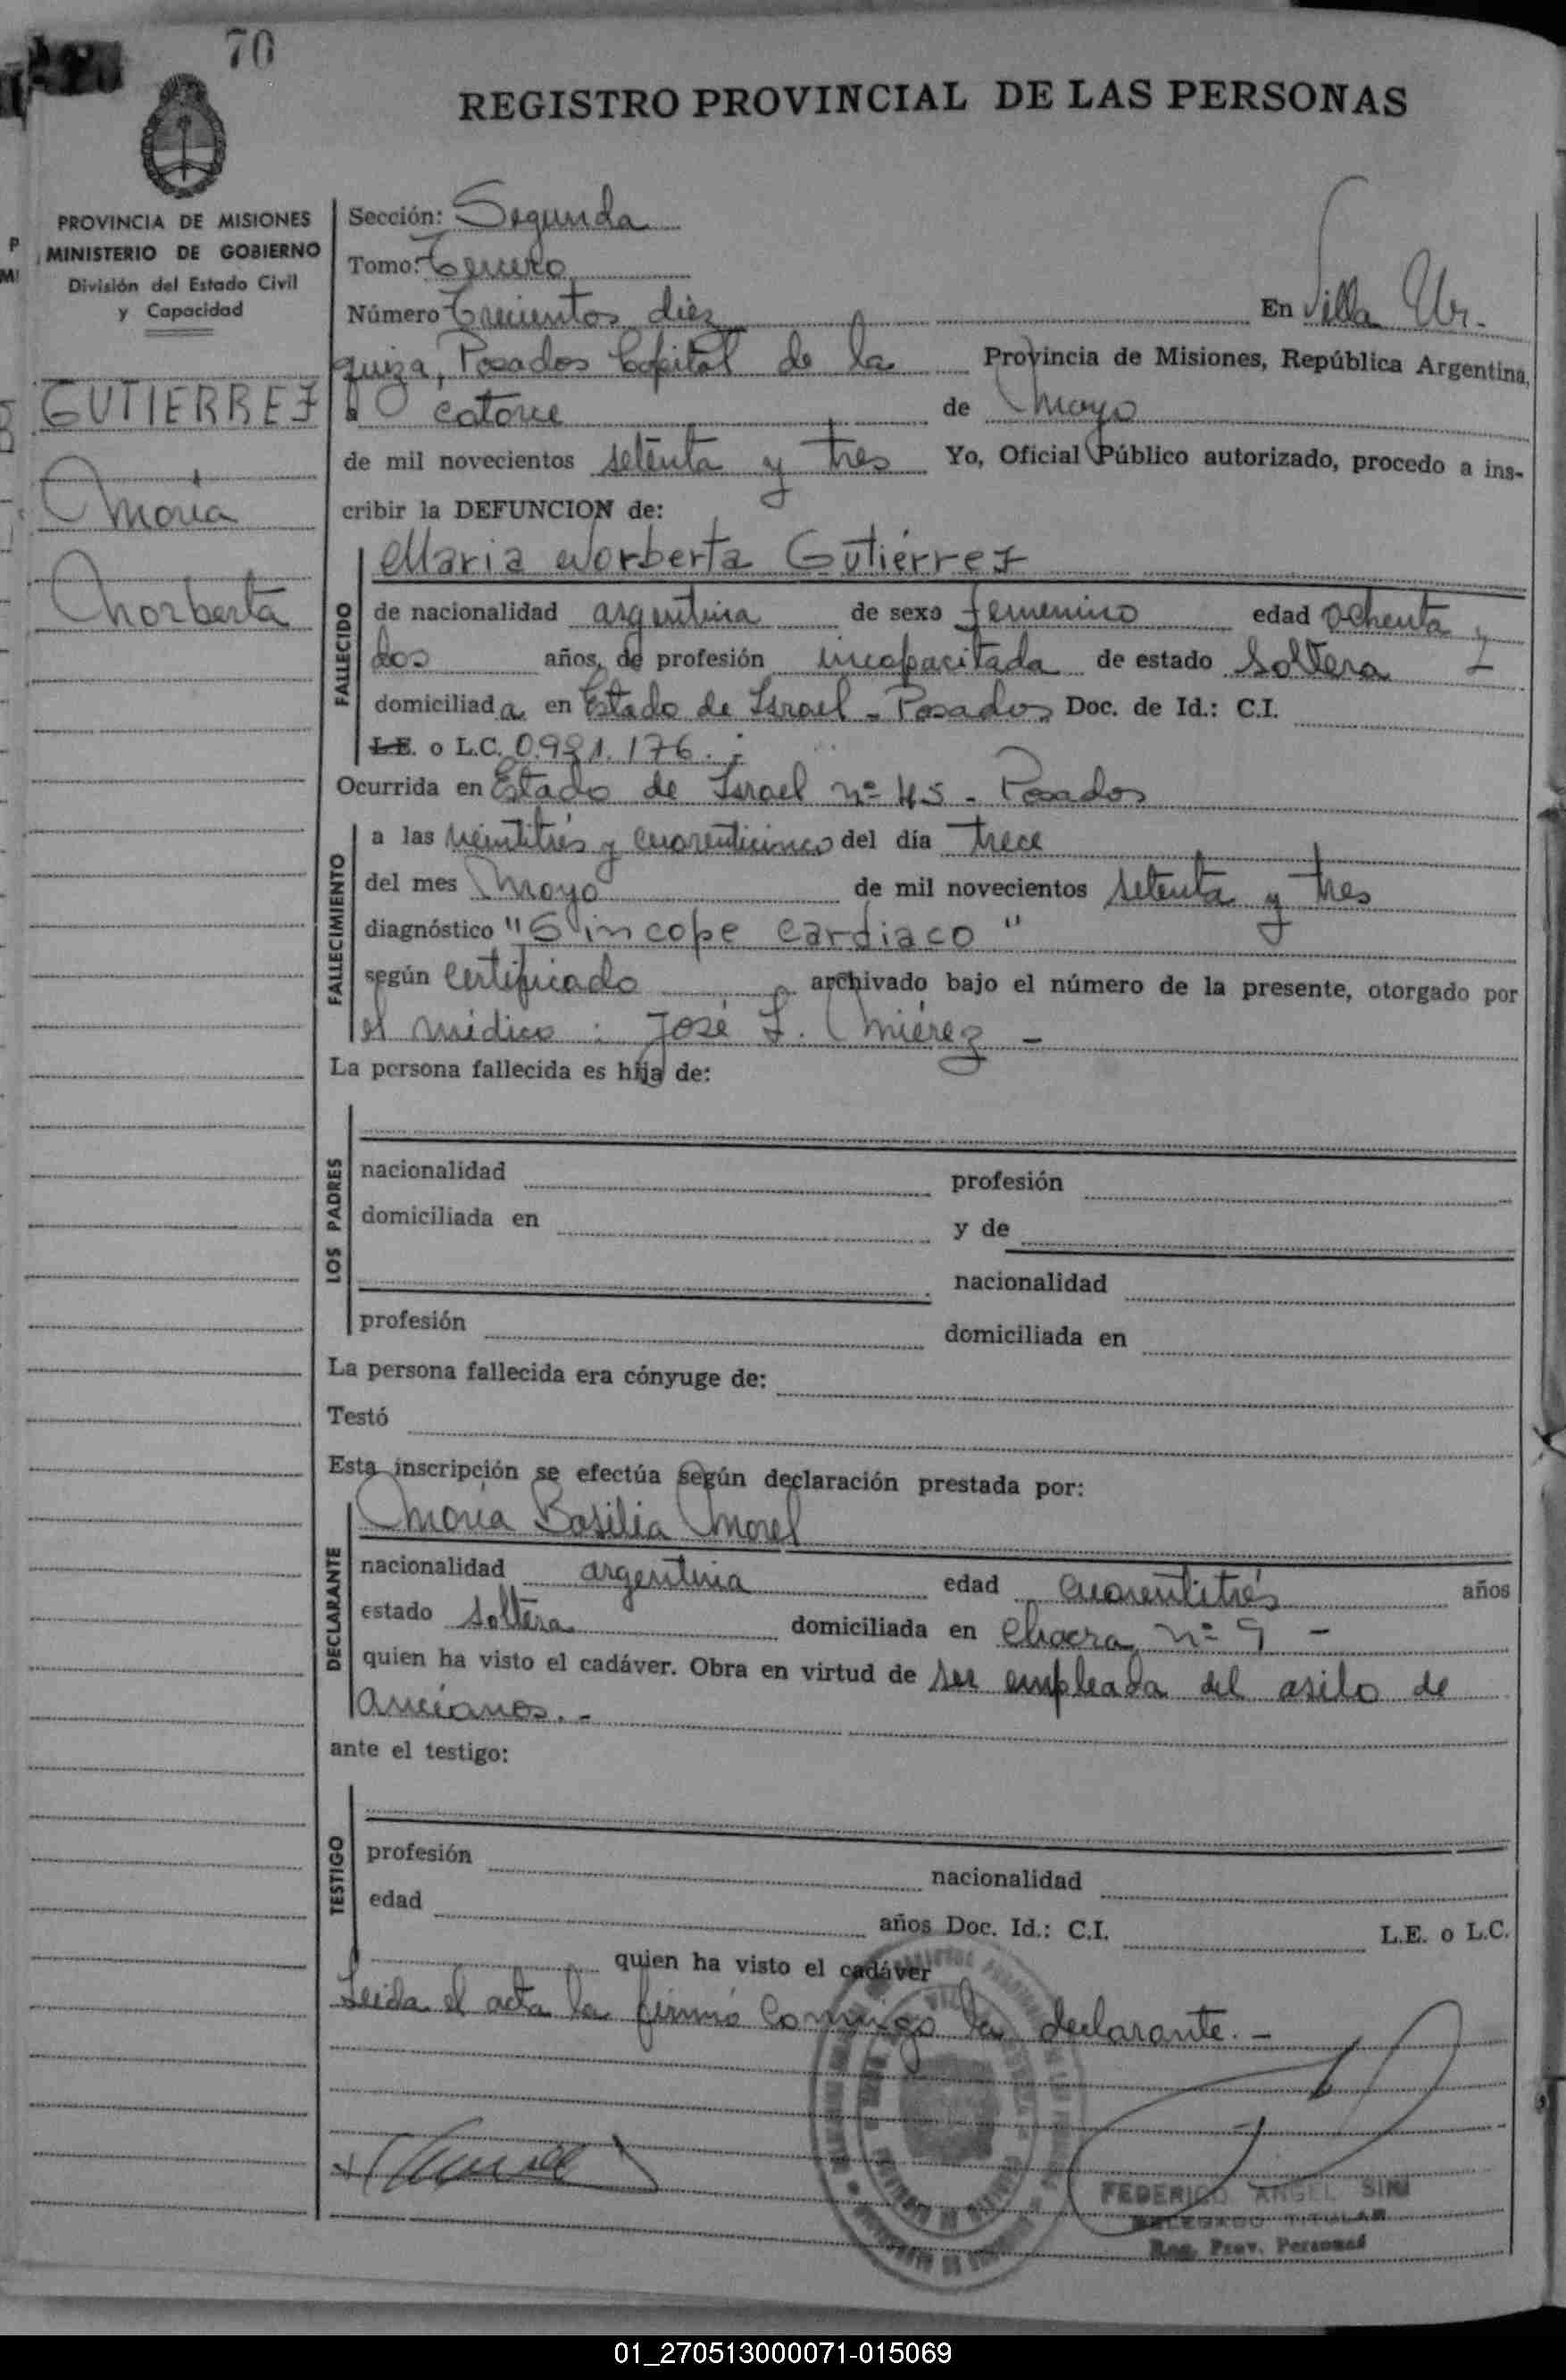 70
REGISTRO PROVINCIAL DE LAS PERSONAS
PROVINCIA DE MISIONES
MINISTERIO DE GOBIERNO
División del Estado Civil
y Capacidad
GUTIERREZ
María
Norberta
Sección: Segunda
Tomo: Tercero
Número Trecientos diez En Villa Ur-
quiza, Posadas Capital de la Provincia de Misiones, República Argentina,
a catorce de Mayo
de mil novecientos setenta y tres Yo, Oficial Público autorizado, procedo a ins-
cribir la DEFUNCION de:
FALLECIDO
Maria Norberta Gutiérrez
de nacionalidad argentina de sexo femenino edad ochenta y
dos años, de profesión incapacitada de estado soltera
domiciliada en Estado de Israel - Posadas Doc. de Id.: C.I.
L.E. o L.C. 0.981.176.
Ocurrida en Estado de Israel nº 45 - Posadas
FALLECIMIENTO
a las veintitrés y cuarenticinco del día trece
del mes Mayo de mil novecientos setenta y tres
diagnóstico "Síncope cardiaco"
según certificado archivado bajo el número de la presente, otorgado por
el médico: José L. Miérez -
La persona fallecida es hija de:
LOS PADRES
nacionalidad profesión
domiciliada en y de
nacionalidad
profesión domiciliada en
La persona fallecida era cónyuge de:
Testó
Esta inscripción se efectúa según declaración prestada por:
DECLARANTE
María Basilia Morel
nacionalidad argentina edad cuarentitrés años
estado soltera domiciliada en Chacra nº 9 -
quien ha visto el cadáver. Obra en virtud de ser empleada del asilo de
ancianos. -
ante el testigo:
TESTIGO
profesión nacionalidad
edad años Doc. Id.: C.I. L.E. o L.C.
quien ha visto el cadáver
Leida el acta la firmó conmigo la declarante. -
FEDERICO ANGEL SINI
DELEGADO TITULAR
Reg. Prov. Personas
01_270513000071-015069